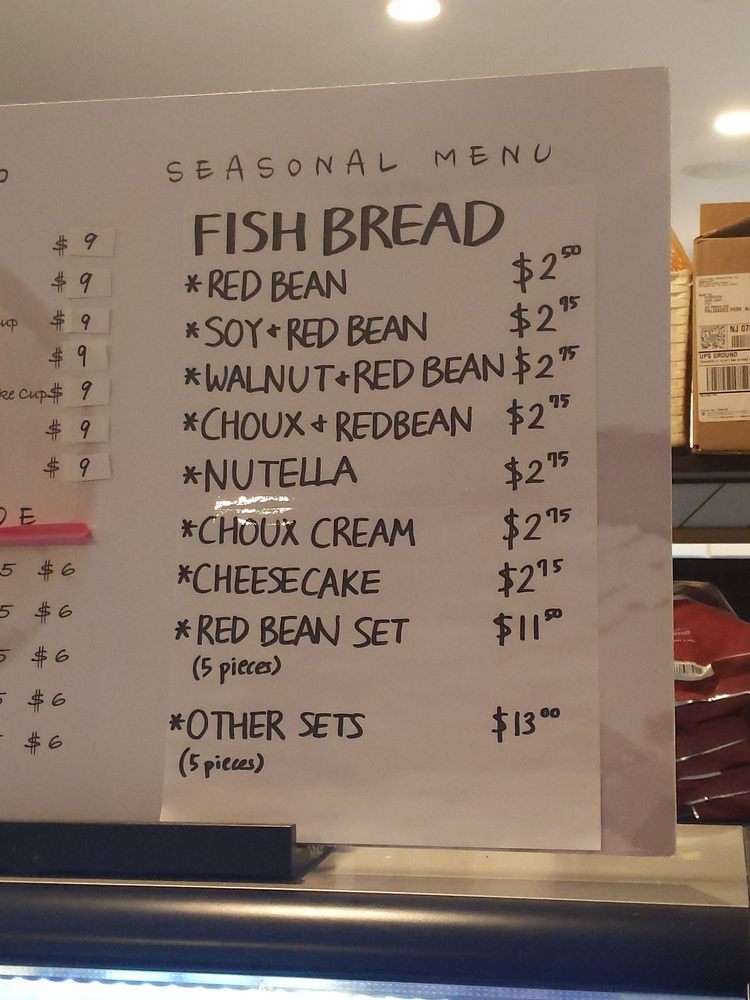 SEASONAL MENU
FISH BREAD
*RED BEAN $2.50
*SOY+RED BEAN $2.75
*WALNUT+RED BEAN $2.75
*CHOUX + REDBEAN $2.75
*NUTELLA $2.75
*CHOUX CREAM $2.75
*CHEESECAKE $2.75
*RED BEAN SET $11.50
(5 pieces)
*OTHER SETS $13.00
(5 pieces)
$9
$9
up $9
$9
ke Cups $9
$9
$9
DE
5 $6
5 $6
5 $6
$6
$6
UPS GROUND